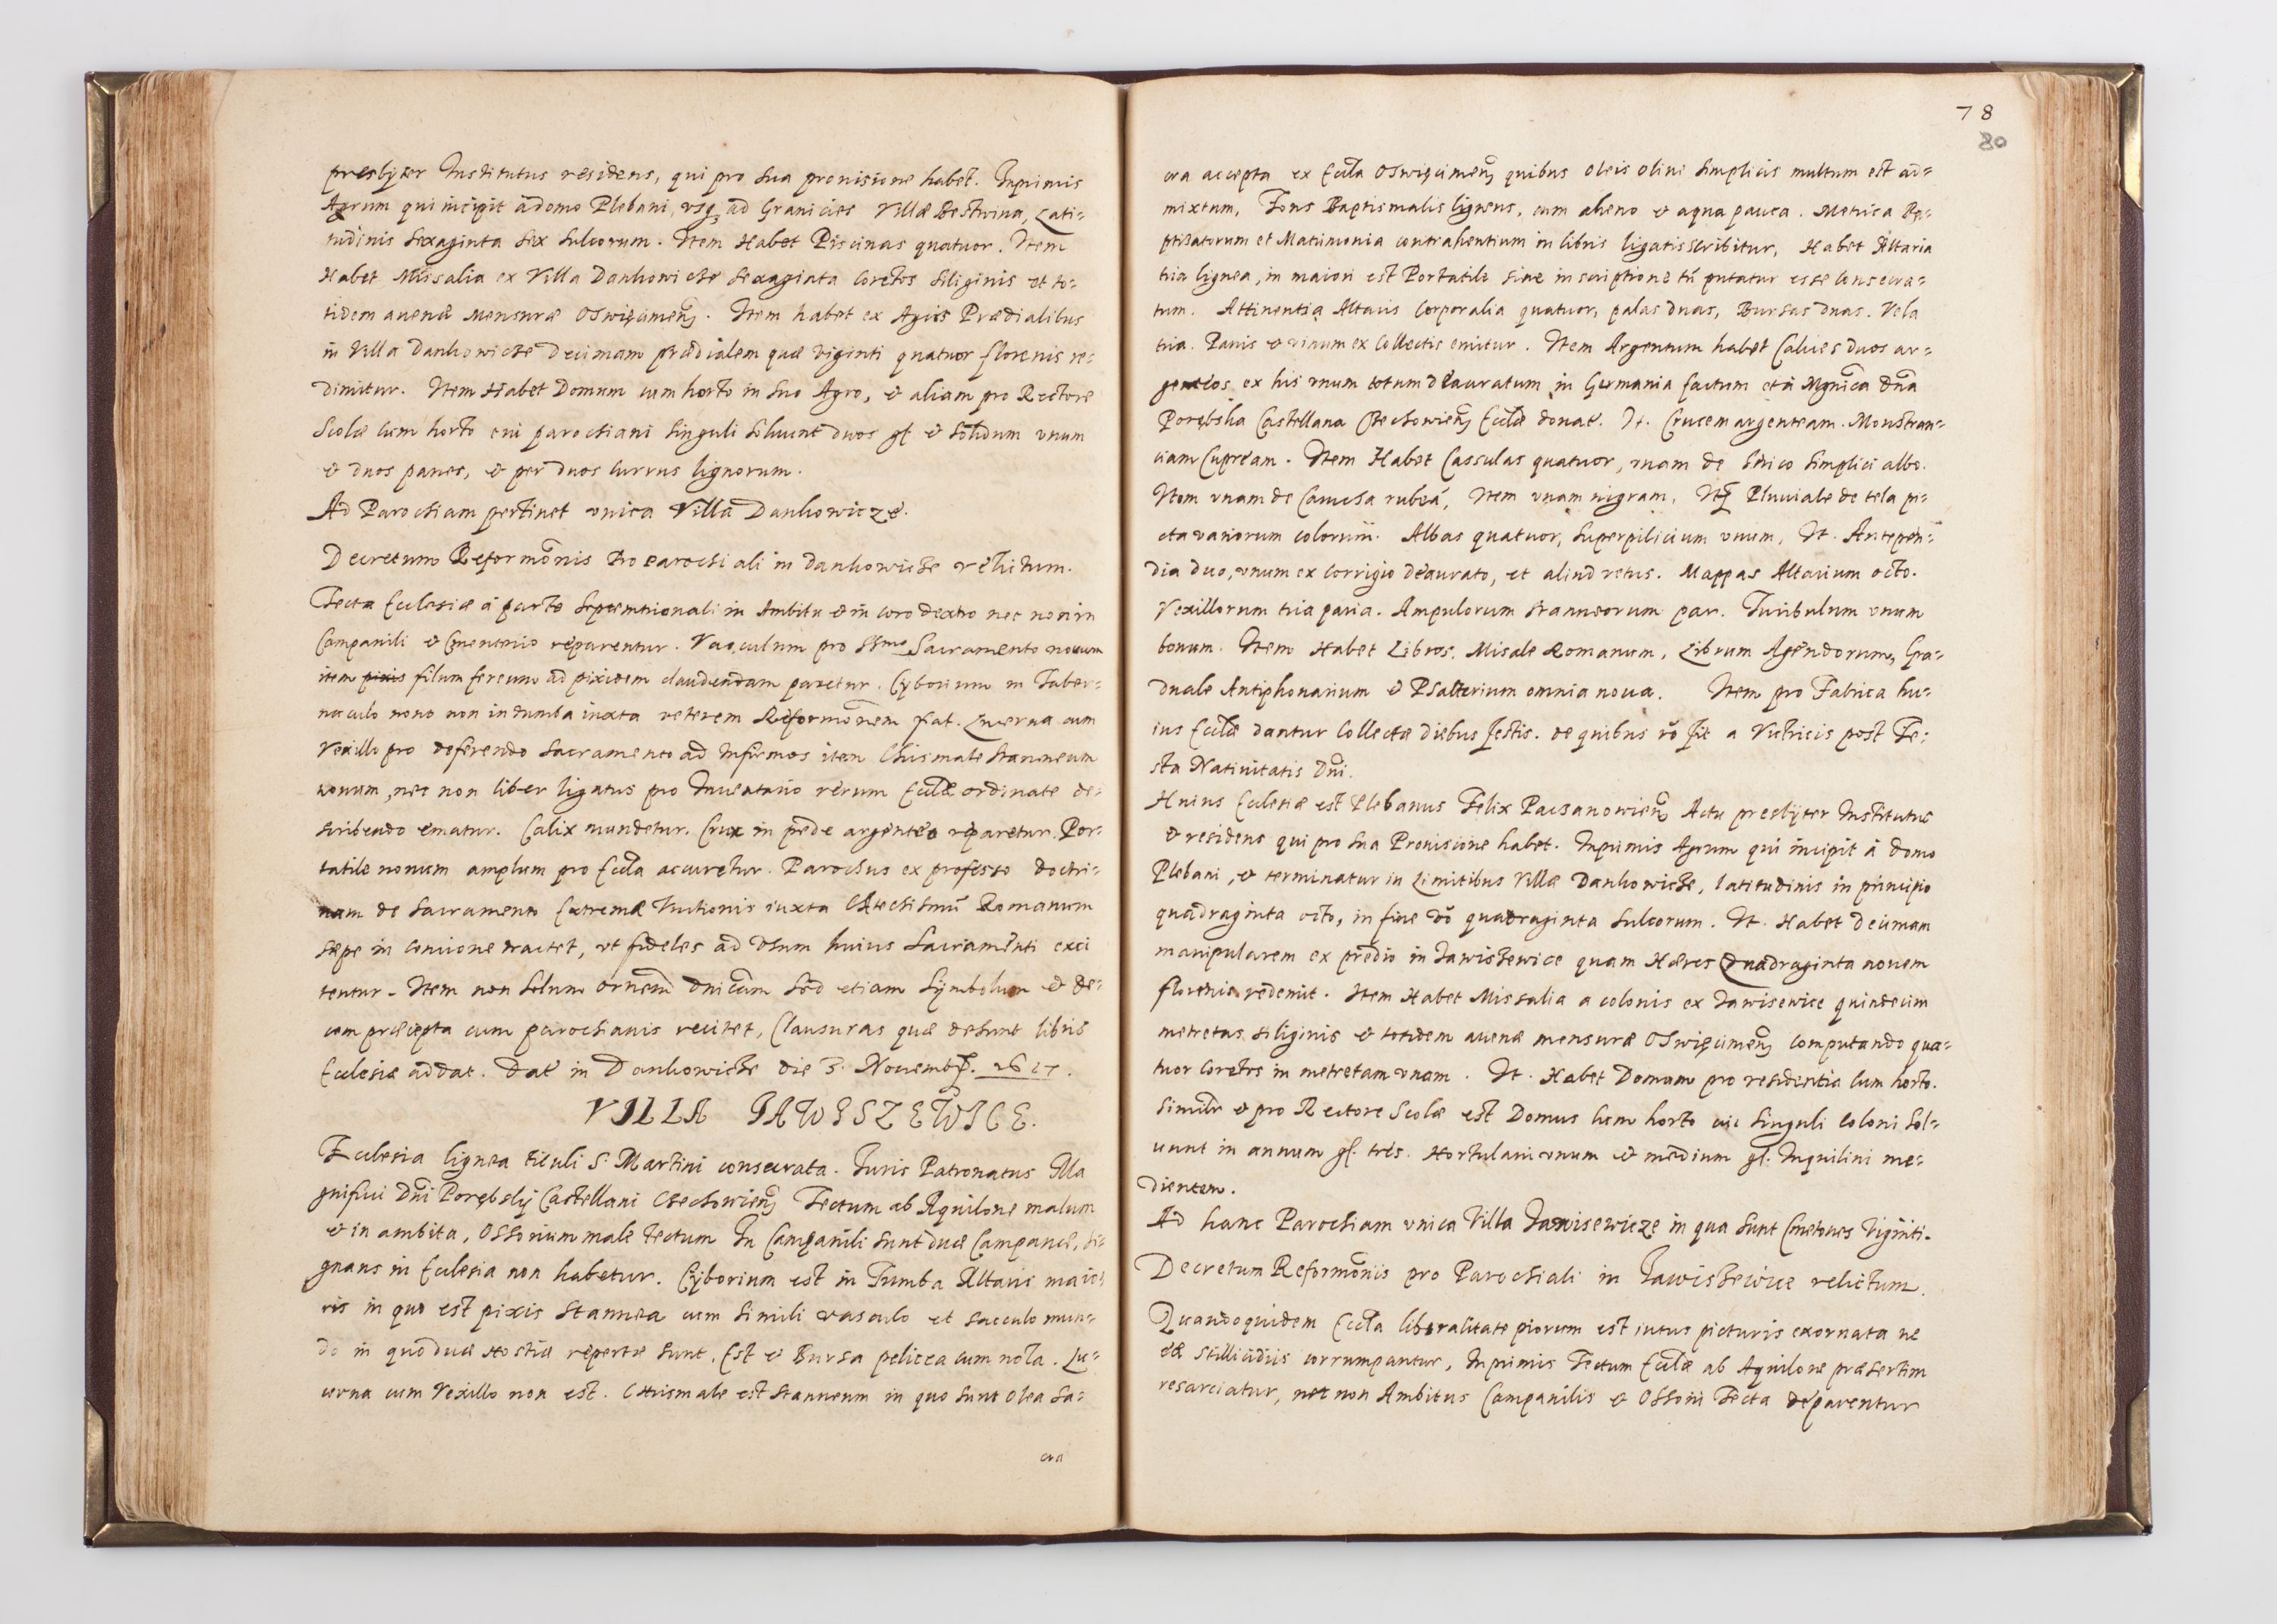 presbyter Institutus residens, qui pro sua prouisione habet. Inprimis
Agrum qui incipit a domo Plebani, usq; ad Granicies Villæ Bestwina, Lati-
tudinis sexaginta sex sulcorum. Item Habet Piscinas quatuor. Item
Habet Missalia ex Villa Dankowicze sexaginta coretos siliginis et to-
tidem auenæ mensuræ Oswięcimen̄. Item habet ex Agris Prædialibus
in Villa Dankowicze Decimam prædialem quæ viginti quatuor florenis re-
dimitur. Item Habet Domum cum horto in suo Agro, & aliam pro Rectore
Scolæ cum horto cui parochiani singuli soluunt duos gl & solidum vnum
& duos panes, & per duos currus lignorum.
Ad Parochiam pertinet vnica Villa Dankowicze.
Decretum Reformōnis pro parochiali in Dankowicze relictum.
Tecta Ecclesiæ á parte septemtrionali in Ambitu & in coro dextro nec non in
Campanili & Cmenterio reparentur. Vasculum pro SSmo Sacramento nouum
item filum ferreum ad pixidem claudendam paretur. Cyborium in Taber-
naculo nouo non in tumba iuxta veterem Reformōnem fiat. Lucerna cum
Vexillo pro deferendo Sacramento ad Infirmos item Chrismale stanneum
nouum, nec non liber ligatus pro Inuentario rerum Eccl̄æ ordinate de-
scribendo ematur. Calix mundetur. Crux in pede argenteo reparetur. Por-
tatile nouum amplum pro Eccl̄a accuretur. Parochus ex professo doctri-
nam de Sacramento Extremæ Vnctionis iuxta Chtechismū Romanum
sæpe in concione tractet, vt fideles ad vsum huius Sacramēnti exci
tentur. Item non solum Or̄nem Dnīcam sed etiam Symbolum & de-
cem præcepta cum parochianis recitet, Clausuras quæ desunt libris
Ecclesiæ addat. Dat in Dankowicze die 3. Nouemb. 1617.
VILLA JAWISZEWICE.
Ecclesia lignea tituli S. Martini consecrata. Iuris Patronatus Ma
gnifici Dn̄i Porębskij Castellani Chechowien̄ Tectum ab Aquilone malum
& in ambitu, Ossorium male tectum In Campanili sunt duæ Campanæ, si-
gnans in Ecclesia non habetur. Cyborium est in Tumba Altaris maio
ris in quo est pixis stannea cum simili vasculo et sacculo mun-
do in quo duæ Hostiæ repertæ sunt. Est & Bursa pelicea cum nola. Lu-
cerna cum Vexillo non est. Chrismale est stanneum in quo sunt olea sa-
cra
78
80
cra accepta ex Eccl̄a Oswięcimen̄ quibus oleis olini simplicis multum est ad-
mixtum, Fons Baptismalis ligneus, cum aheno & aqua pauca. Metrica Ba-
ptizatorum et Matrimonia contrahentium in libris ligatis scribitur, Habet Altaria
tria lignea, in maiori est Portatile sine inscriptione tn̄ putatur esse consecra-
tum. Attinentia Altaris Corporalia quatuor, palas duas, Bursas duas. Vela
tria. Panis & vinum ex Collectis emitur. Item Argentum habet Calices duos ar-
genteos ex his vnum totum deauratum in Germania factum et á Mgn̄ica Dn̄a
Porębska Castellana Chechowien̄ Eccl̄æ donat. It. Crucem argenteam. Monstran-
ciam Cupream. Item Habet Cassulas quatuor, vnam de sirico simplici albo.
Item vnam de Camcha rubeá, Item vnam nigram, Itē Pluuiale de tela pi-
cta variorum colorum. Albas quatuor, Superpilicium vnum, It. Antepen-
dia duo, vnum ex corrigio deaurato, et aliud vetus. Mappas Altarium octo.
Vexillorum tria paria. Ampulorum stanneorum par. Turibulum vnum
bonum. Item Habet Libros, Misale Romanum, Librum Agendorum, Gra-
duale Antiphonarium & Psalterium omnia noua. Item pro Fabrica hu-
ius Eccl̄æ dantur Collectæ diebus festis. de quibus rō fit a Vitricis post Fe-
sta Natiuitatis Dn̄i.
Huius Ecclesiæ est Plebanus Felix Paczanowien̄ Actu presbyter Institutus
& residens qui pro sua Prouisione habet. Inprimis Agrum qui incipit á domo
Plebani, & terminatur in Limitibus Villæ Dankowicze, latitudinis in principio
quadraginta octo, in fine vō quadraginta sulcorum. It. Habet Decimam
manipularem ex prędio in Jawiszewice quam Hæres Quadraginta nouem
florenis redemit. Item Habet Missalia a colonis ex Jawisewice quindecim
metretas siliginis & totidem auenæ mensuræ Oswięcimen̄ computando qua-
tuor coretos in metretam vnam. It. Habet Domum pro residentia cum horto.
Similr & pro Rectore Scolæ est Domus cum horto cui singuli coloni sol-
uunt in annum gl. tres. Hortulani vnum & medium gl. Inquilini me-
dietem.
Ad hanc Parochiam vnica Villa Jawisewicze in qua sunt Cmetones viginti.
Decretum Reformōnis pro Parochiali in Jawiszewice relictum.
Quandoquidem Eccl̄a liberalitate piorum est intus picturis exornata ne
eæ stillicidiis corrumpantur, Inprimis Tectum Eccl̄æ ab Aquilone præsertim
resarciatur, nec non Ambitus Campanilis & Ossorii Tecta reparentur